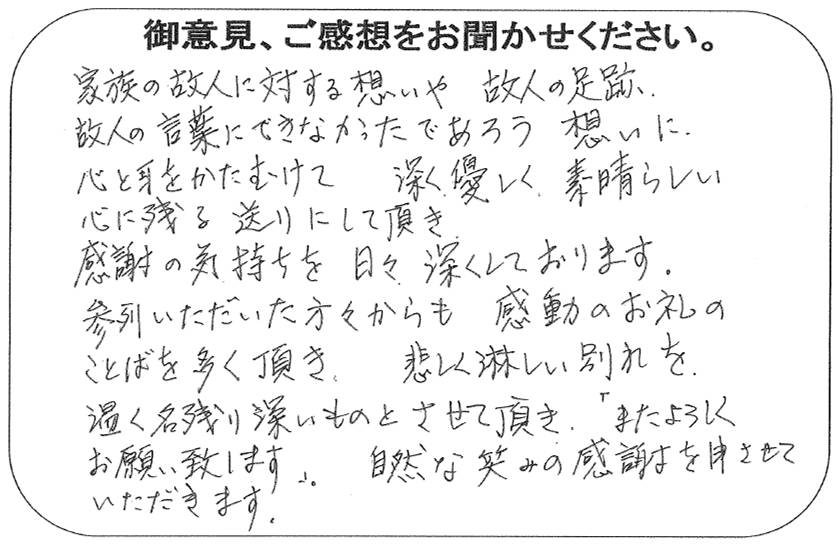 御意見、ご感想をお聞かせください。
家族の故人に対する想いや 故人の足跡、
故人の言葉にできなかったであろう 想いに、
心と耳をかたむけて 深く、優しく、素晴らしい
心に残る 送りにして頂き、
感謝の気持ちを 日々、深くしております。
参列いただいた方々からも 感動のお礼の
ことばを多く頂き、 悲しく淋しい別れを、
温く名残り深いものとさせて頂き、「またよろしく
お願い致します」。 自然な笑みの感謝を申させて
いただきます。